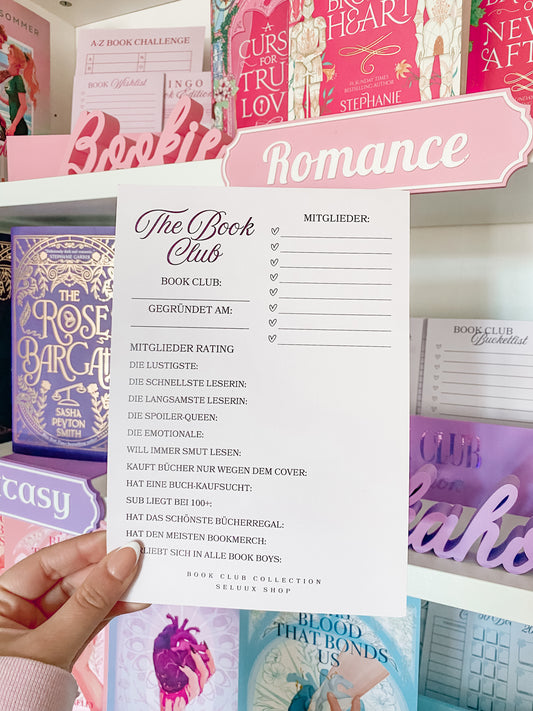 SOMMER
A-Z BOOK CHALLENGE
BOOK Wishlist
INGO
Edition
Bookie
A CURSE
FOR
TRUE
LOVE
HEART
STEPHANIE
OF
NEW
AFTER
Romance
The Book
Club
BOOK CLUB:
GEGRÜNDET AM:
MITGLIEDER:
MITGLIEDER RATING
DIE LUSTIGSTE:
DIE SCHNELLSTE LESERIN:
DIE LANGSAMSTE LESERIN:
DIE SPOILER-QUEEN:
DIE EMOTIONALE:
WILL IMMER SMUT LESEN:
KAUFT BÜCHER NUR WEGEN DEM COVER:
HAT EINE BUCH-KAUFSUCHT:
SUB LIEGT BEI 100+:
HAT DAS SCHÖNSTE BÜCHERREGAL:
HAT DEN MEISTEN BOOKMERCH:
RLIEBT SICH IN ALLE BOOK BOYS:
BOOK CLUB COLLECTION
SELUUX SHOP
STEPHANIE GARBER
THE
ROSE
BARGA
SASHA
PEYTON
SMITH
tasy
BOOK CLUB
Bucketlist
CLUB
aho
BLOOD
THAT BONDS
US